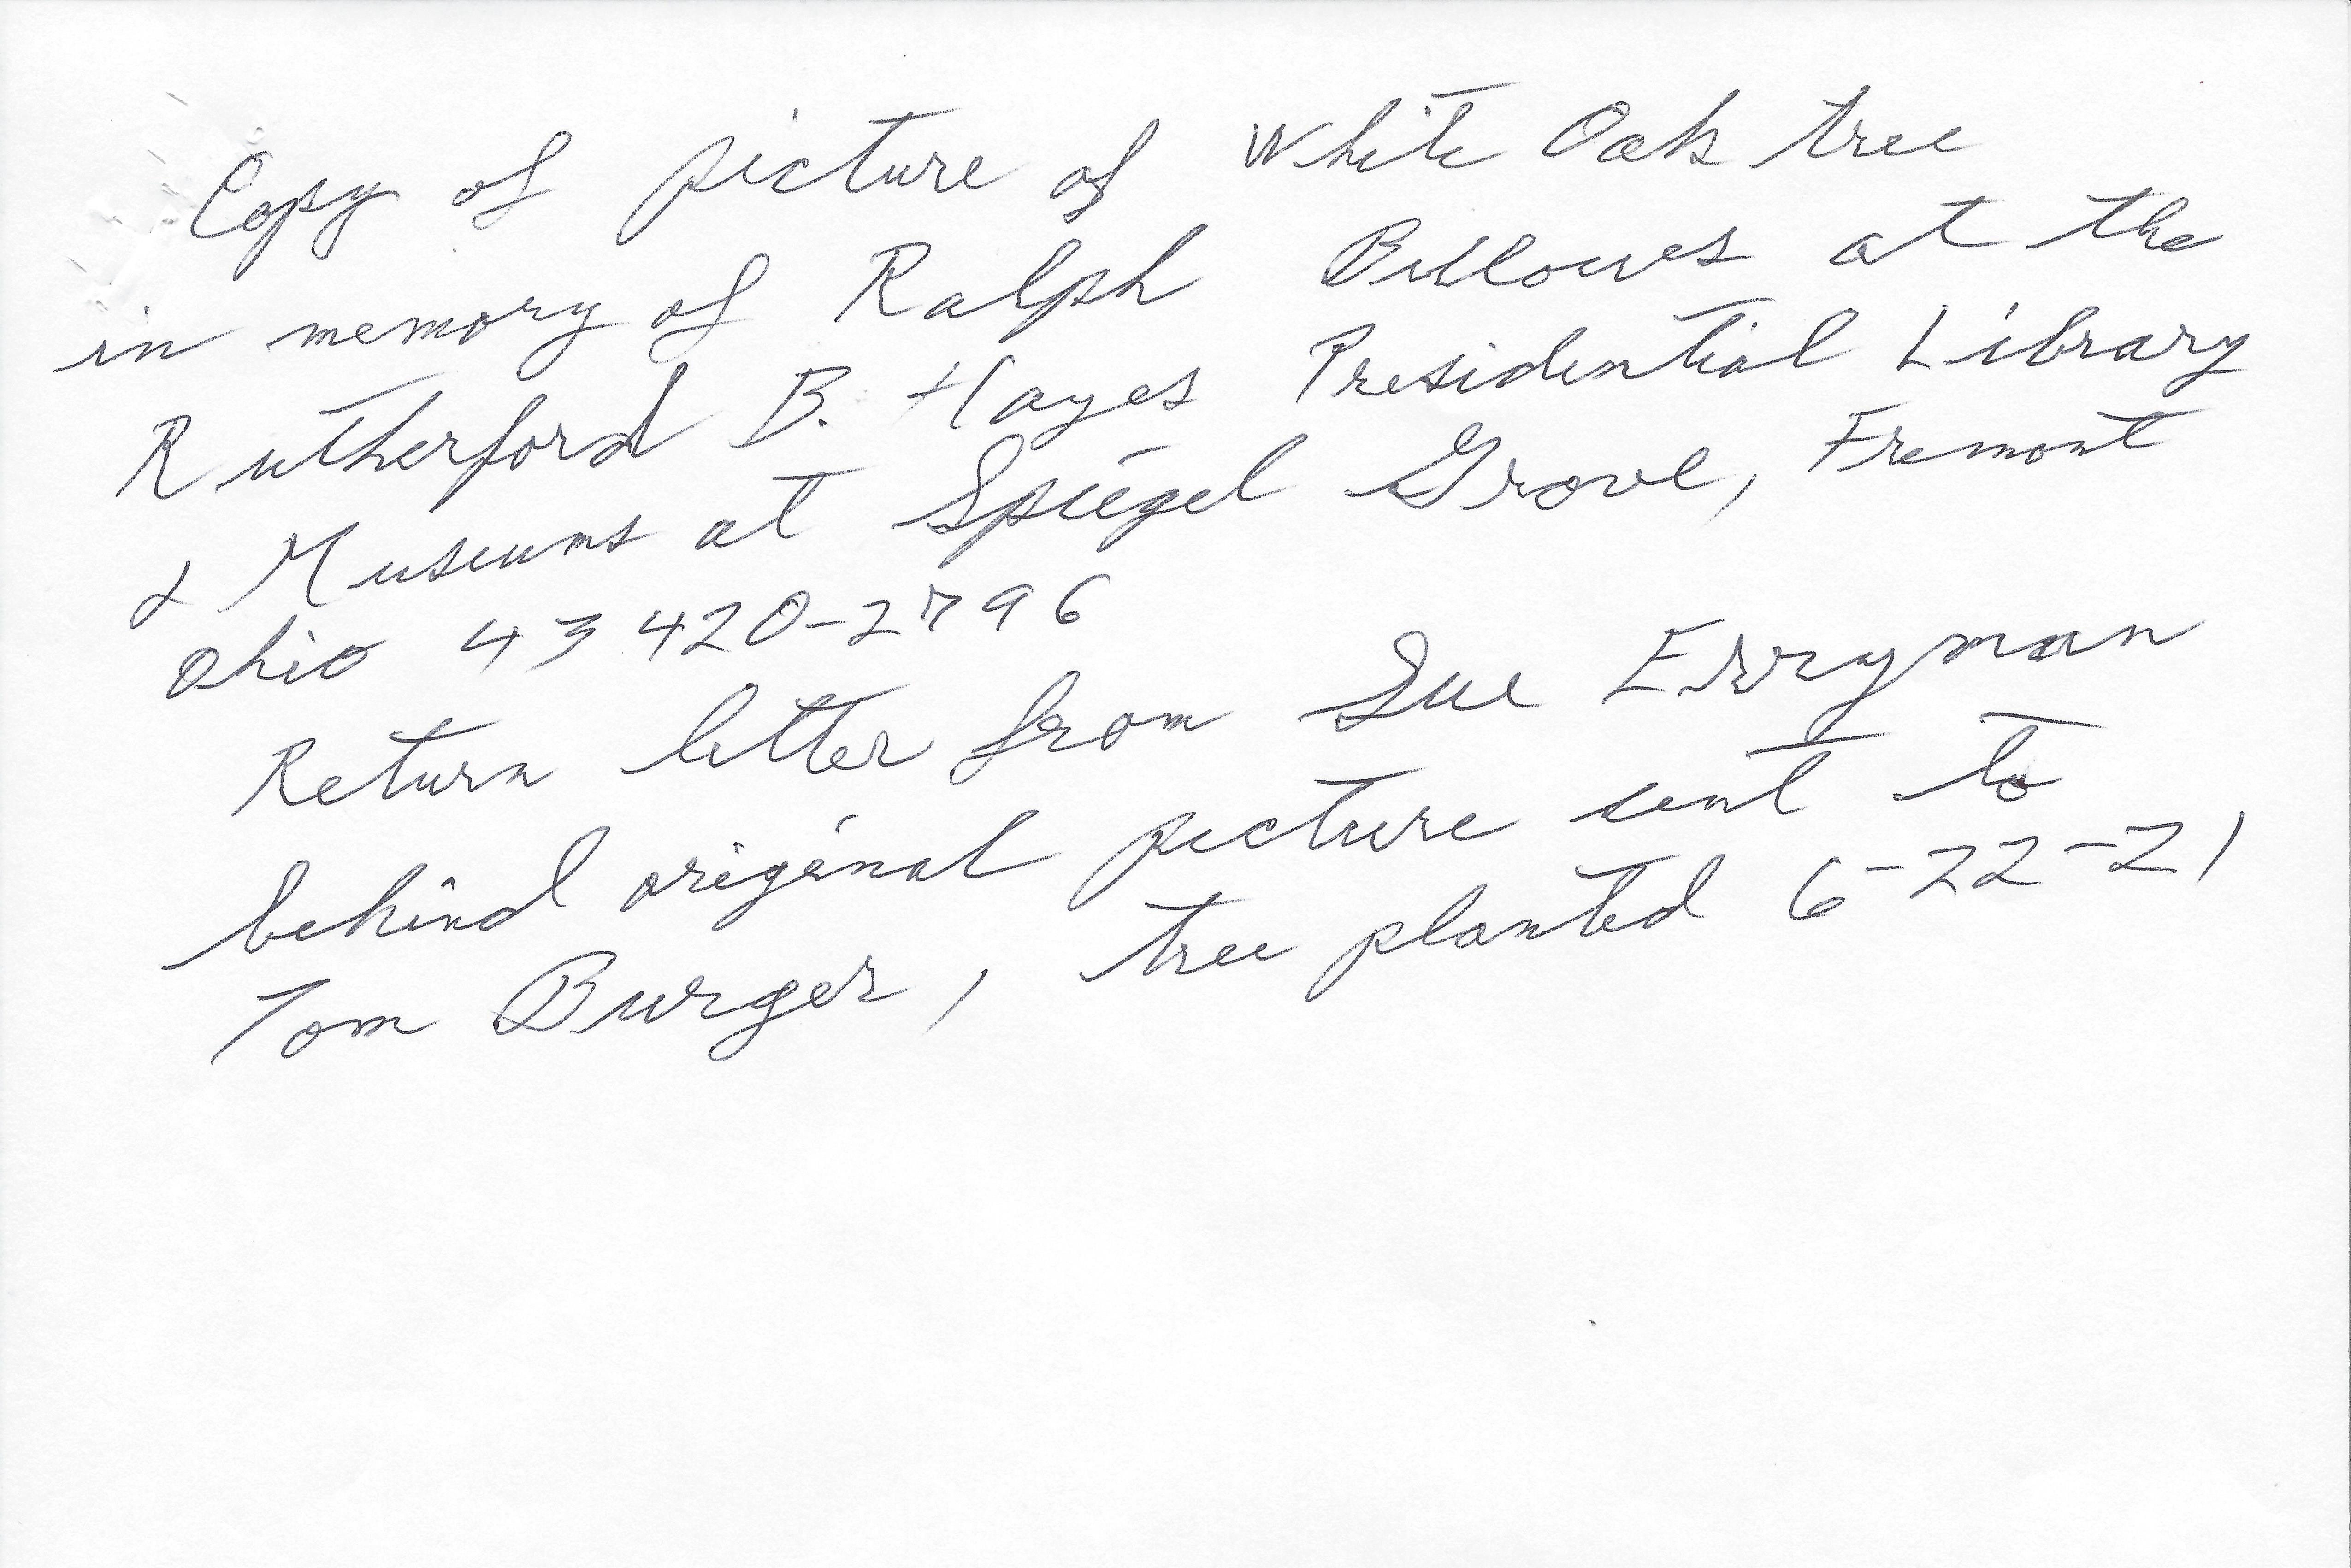 Copy of picture of White Oak tree
in memory of Ralph Billowes at the
Rutherford B. Hayes Presidential Library
& Museums at Spiegel Grove, Fremont
Ohio 43420-2796
Return letter from Sue
behind original picture sent to
Tom Burger, tree planted 6-22-21